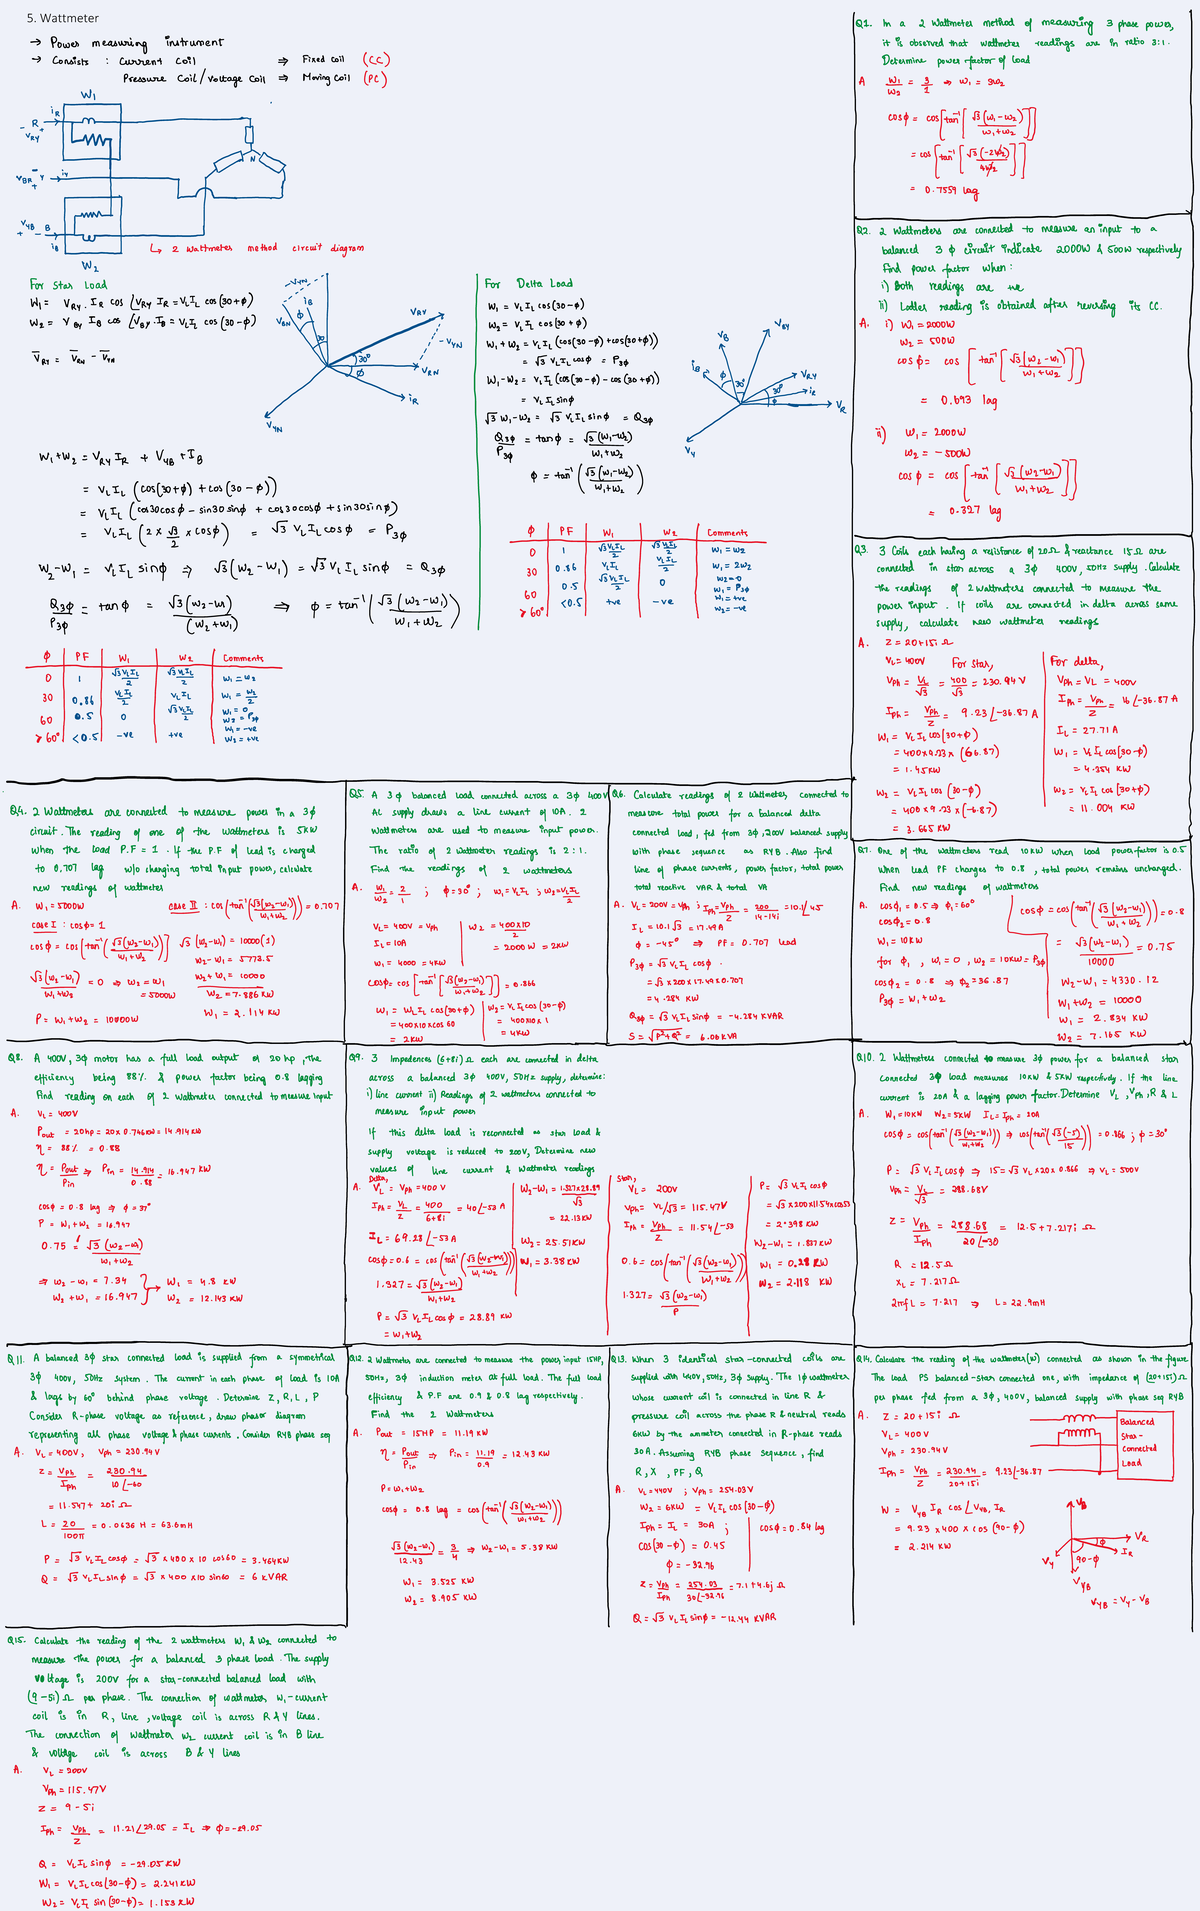 5. Wattmeter
→ Power measuring instrument
→ Consists : Current coil ⇒ Fixed coil (CC)
Pressure Coil/Voltage Coil ⇒ Moving coil (PC)
W1
R iR
VRY
N
VBR Y iY
VYB B
iB
W2
↳ 2 wattmeter method circuit diagram
For Star Load
W1 = VRY . IR cos ∠VRY IR = VL IL cos(30+φ)
W2 = VBY IB cos ∠VBY . IB = VL IL cos(30-φ)
V̄RY = V̄RN - V̄YN
-VYN
iB
VBN
φ
30
VRY
-VYN
30°
VRN
φ
iR
VYN
W1+W2 = VRY IR + VYB + IB
= VL IL (cos(30+φ) + cos(30-φ))
= VL IL (cos30cosφ - sin30sinφ + cos30cosφ + sin30sinφ)
= VL IL (2 x √3/2 x cosφ) = √3 VL IL cosφ = P3φ
W2-W1 = VL IL sinφ ⇒ √3(W2-W1) = √3 VL IL sinφ = Q3φ
Q3φ/P3φ = tanφ = √3(W2-W1)/(W2+W1) ⇒ φ = tan⁻¹(√3(W2-W1)/W1+W2)
φ PF W1 W2 Comments
0 1 √3VLIL/2 √3VLIL/2 W1 = W2
30 0.86 VLIL/2 VLIL W1 = W2/2
60 0.5 0 √3VLIL/2 W1 = 0 W2 = P3φ
>60° <0.5 -ve +ve W1 = -ve W2 = +ve
For Delta Load
W1 = VL IL cos(30-φ)
W2 = VL IL cos(30+φ)
W1+W2 = VL IL (cos(30-φ) + cos(30+φ))
= √3 VL IL cosφ = P3φ
W1-W2 = VL IL (cos(30-φ) - cos(30+φ))
= VL IL sinφ
√3 W1-W2 = √3 VL IL sinφ = Q3φ
Q3φ/P3φ = tanφ = √3(W1-W2)/W1+W2
φ = tan⁻¹(√3(W1-W2)/W1+W2)
VB
VBY
iB
φ
30°
VRY
30°
iR
φ
VR
VY
φ PF W1 W2 Comments
0 1 √3VLIL/2 √3VLIL/2 W1 = W2
30 0.86 VLIL VLIL/2 W1 = 2W2
60 0.5 √3VLIL/2 0 W2=0 W1 = P3φ
>60° <0.5 +ve -ve W1 = +ve W2 = -ve
Q1. In a 2 Wattmeter method of measuring 3 phase power,
it is observed that wattmeter readings are in ratio 3:1.
Determine power factor of load
A W1/W2 = 3/1 ⇒ W1 = 3W2
cosφ = cos[tan⁻¹[√3(W1-W2)/W1+W2]]
= cos[tan⁻¹[√3(-2W2)/4W2]]
= 0.7559 lag
Q2. 2 Wattmeters are connected to measure an input to a
balanced 3 φ circuit indicate 2000W & 500W respectively
Find power factor when:
i) Both readings are +ve
ii) Latter reading is obtained after reversing its CC.
A. i) W1 = 2000W
W2 = 500W
cosφ = cos[tan⁻¹[√3(W2-W1)/W1+W2]]
= 0.693 lag
ii) W1 = 2000W
W2 = -500W
cosφ = cos[tan⁻¹[√3(W2-W1)/W1+W2]]
= 0.327 lag
Q3. 3 Coils each having a resistance of 20Ω & reactance 15Ω are
connected in star across a 3φ 400V, 50Hz supply. Calculate
the readings of 2 wattmeters connected to measure the
power input. If coils are connected in delta across same
supply, calculate new wattmeter readings
A. Z = 20+15i Ω
VL = 400V For star,
VPh = VL/√3 = 400/√3 = 230.94V
IPh = VPh/Z = 9.23∠-36.87A
W1 = VL IL cos(30+φ)
= 400x9.23x(66.87)
= 1.45KW
W2 = VL IL cos(30-φ)
= 400x9.23x(-6.87)
= 3.665 KW
For delta,
VPh = VL = 400V
IPh = VPh/Z = 16∠-36.87A
IL = 27.71A
W1 = VL IL cos(30-φ)
= 4.354 KW
W2 = VL IL cos(30+φ)
= 11.004 KW
Q4. 2 Wattmeters are connected to measure power in a 3φ
circuit. The reading of one of the wattmeters is 5KW
when the load P.F = 1. If the P.F of load is changed
to 0.707 lag w/o changing total input power, calculate
new readings of wattmeter
A. W1 = 5000W
case I : cosφ = 1
cosφ = cos(tan⁻¹(√3(W2-W1)/W1+W2))
√3(W2-W1)/W1+W2 = 0 ⇒ W2 = W1 = 5000W
P = W1+W2 = 10000W
case II : cos(tan⁻¹(√3(W2-W1)/W1+W2)) = 0.707
√3(W2-W1) = 10000(1)
W2-W1 = 5773.5
W2+W1 = 10000
W2 = 7.886 KW
W1 = 2.114 KW
Q5. A 3φ balanced load connected across a 3φ 400V
AC supply draws a line current of 10A. 2
Wattmeters are used to measure input power.
The ratio of 2 wattmeter readings is 2:1.
Find the readings of 2 wattmeters
A. W1/W2 = 2/1 ; φ = 30° ; W1 = VLIL ; W2 = VLIL/2
VL = 400V = VPh
IL = 10A
W1 = 4000 = 4KW
W2 = 400x10/2
= 2000W = 2KW
cosφ = cos[tan⁻¹[√3(W2-W1)/W1+W2]] = 0.866
W1 = VL IL cos(30+φ)
= 400x10xcos60
= 2KW
W2 = VL IL cos(30-φ)
= 400x10x1
= 4KW
Q6. Calculate readings of 2 wattmeter, connected to
measure total power for a balanced delta
connected load, fed from 3φ, 200V balanced supply
with phase sequence as RYB. Also find
line of phase currents, power factor, total power
total reactive VAR & total VA
A. VL = 200V = VPh ; IPh = VPh/Z = 200/14-14i = 10.1∠45
IL = 10.1√3 = 17.49A
φ = -45° ⇒ PF = 0.707 lead
P3φ = √3 VL IL cosφ
= √3x200x17.49x0.707
= 4.284 KW
Q3φ = √3 VL IL sinφ = -4.284 KVAR
S = √P²+Q² = 6.06 KVA
Q7. One of the wattmeters read 10KW when load powerfactor is 0.5
when load PF changes to 0.8, total power remains unchanged.
Find new readings of wattmeters
A cosφ1 = 0.5 ⇒ φ1 = 60°
cosφ2 = 0.8
W1 = 10KW
for φ1, W1 = 0, W2 = 10KW = P3φ
cosφ2 = 0.8 ⇒ φ2 = 36.87
P3φ = W1+W2
cosφ = cos(tan⁻¹(√3(W2-W1)/W1+W2)) = 0.8
= √3(W2-W1)/10000 = 0.75
W2-W1 = 4330.12
W1+W2 = 10000
W1 = 2.834 KW
W2 = 7.165 KW
Q8. A 400V, 3φ motor has a full load output of 20 hp, the
efficiency being 88% & power factor being 0.8 lagging
Find reading on each of 2 wattmeter connected to measure input
A. VL = 400V
Pout = 20hp = 20x0.746KW = 14.914KW
η = 88% = 0.88
η = Pout/Pin ⇒ Pin = 14.914/0.88 = 16.947 KW
cosφ = 0.8 lag ⇒ φ = 37°
P = W1+W2 = 16.947
0.75 = √3(W2-W1)/W1+W2
⇒ W2-W1 = 7.34
W2+W1 = 16.947
W1 = 4.8 KW
W2 = 12.143 KW
Q9. 3 Impedences (6+8i)Ω each are connected in delta
across a balanced 3φ 400V, 50Hz supply, determine:
i) line current ii) Readings of 2 wattmeters connected to
measure input power
If this delta load is reconnected as star load &
supply voltage is reduced to 200V, Determine new
values of line current & Wattmeter readings
Delta,
A. VL = VPh = 400V
IPh = VL/Z = 400/6+8i = 40∠-53 A
IL = 69.28∠-53 A
cosφ = 0.6 = cos(tan⁻¹(√3(W2-W1)/W1+W2))
1.327 = √3(W2-W1)/W1+W2
P = √3 VL IL cosφ = 28.89 KW
= W1+W2
W2-W1 = 1.327x28.89/√3
= 22.13KW
W2 = 25.51KW
W1 = 3.38KW
Star,
VL = 200V
VPh = VL/√3 = 115.47V
IPh = VPh/Z = 11.54∠-53
0.6 = cos(tan⁻¹(√3(W2-W1)/W1+W2))
1.327 = √3(W2-W1)/P
P = √3 VL IL cosφ
= √3x200x11.54xcos53
= 2.398 KW
W2-W1 = 1.837KW
W1 = 0.28 KW
W2 = 2.118 KW
Q10. 2 Wattmeters connected to measure 3φ power for a balanced star
connected 3φ load measures 10KW & 5KW respectively. If the line
current is 20A & a lagging power factor. Determine VL, VPh, R & L
A. W1 = 10KW W2 = 5KW IL = IPh = 20A
cosφ = cos(tan⁻¹(√3(W2-W1)/W1+W2)) ⇒ cos(tan⁻¹(√3(-5)/15)) = 0.866 ; φ = 30°
P = √3 VL IL cosφ ⇒ 15 = √3 VL x20x0.866 ⇒ VL = 500V
VPh = VL/√3 = 288.68V
Z = VPh/IPh = 288.68/20∠-30 = 12.5+7.217i Ω
R = 12.5Ω
XL = 7.217Ω
2πfL = 7.217 ⇒ L = 22.9mH
Q11. A balanced 3φ star connected load is supplied from a symmetrical
3φ 400V, 50Hz system. The current in each phase of load is 10A
& lags by 60° behind phase voltage. Determine Z, R, L, P
Consider R-phase voltage as reference, draw phasor diagram
representing all phase voltage & phase currents. Consider RYB phase seq
A. VL = 400V, VPh = 230.94V
Z = VPh/IPh = 230.94/10∠-60
= 11.547 + 20i Ω
L = 20/100π = 0.0636 H = 63.6mH
P = √3 VL IL cosφ = √3 x 400 x 10 cos60 = 3.464KW
Q = √3 VL IL sinφ = √3 x 400 x10 sin60 = 6 KVAR
Q12. 2 Wattmeter are connected to measure the power, input 15HP,
50Hz, 3φ induction meter at full load. The full load
efficiency & P.F are 0.9 & 0.8 lag respectively.
Find the 2 Wattmeters
A. Pout = 15HP = 11.19 KW
η = Pout/Pin ⇒ Pin = 11.19/0.9 = 12.43 KW
P = W1+W2
cosφ = 0.8 lag = cos(tan⁻¹(√3(W2-W1)/W1+W2))
√3(W2-W1)/12.43 = 3/4 ⇒ W2-W1 = 5.38 KW
W1 = 3.525 KW
W2 = 8.905 KW
Q13. When 3 identical star-connected coils are
supplied with 440V, 50Hz, 3φ supply. The 1φ wattmeter
whose current coil is connected in line R &
pressure coil across the phase R & neutral reads
6KW by the ammeter connected in R-phase reads
30A. Assuming RYB phase sequence, find
R, X, PF, Q
A. VL = 440V ; VPh = 254.03V
W2 = 6KW = VL IL cos(30-φ)
IPh = IL = 30A ;
cos(30-φ) = 0.45
φ = -32.96
cosφ = 0.84 lag
Z = VPh/IPh = 254.03/30∠-32.96 = 7.1+4.6j Ω
Q = √3 VL IL sinφ = -12.44 KVAR
Q14. Calculate the reading of the wattmeter(W) connected as shown in the figure
The load PS balanced-star connected one, with impedance of (20+15i)Ω
per phase fed from a 3φ, 400V, balanced supply with phase seq RYB
A. Z = 20+15i Ω
VL = 400V
VPh = 230.94V
IPh = VPh/Z = 230.94/20+15i = 9.23∠-36.87
Balanced
Star-
Connected
Load
W = VYB IR cos∠VYB, IR
= 9.23 x 400 x cos(90-φ)
= 2.214 KW
VB
VR
φ
IR
VY
90-φ
VYB
VYB = VY - VB
Q15. Calculate the reading of the 2 wattmeters W1 & W2 connected to
measure the power for a balanced 3 phase load. The supply
voltage is 200V for a star-connected balanced load with
(9-5i)Ω per phase. The connection of wattmeter W1-current
coil is in R, line, voltage coil is across R & Y lines.
The connection of wattmeter W2 current coil is in B line
& voltage coil is across B & Y lines
A. VL = 200V
VPh = 115.47V
Z = 9-5i
IPh = VPh/Z = 11.21∠29.05 = IL ⇒ φ = -29.05
Q = VL IL sinφ = -29.05 KW
W1 = VL IL cos(30-φ) = 2.241KW
W2 = VL IL sin(30-φ) = 1.153 KW